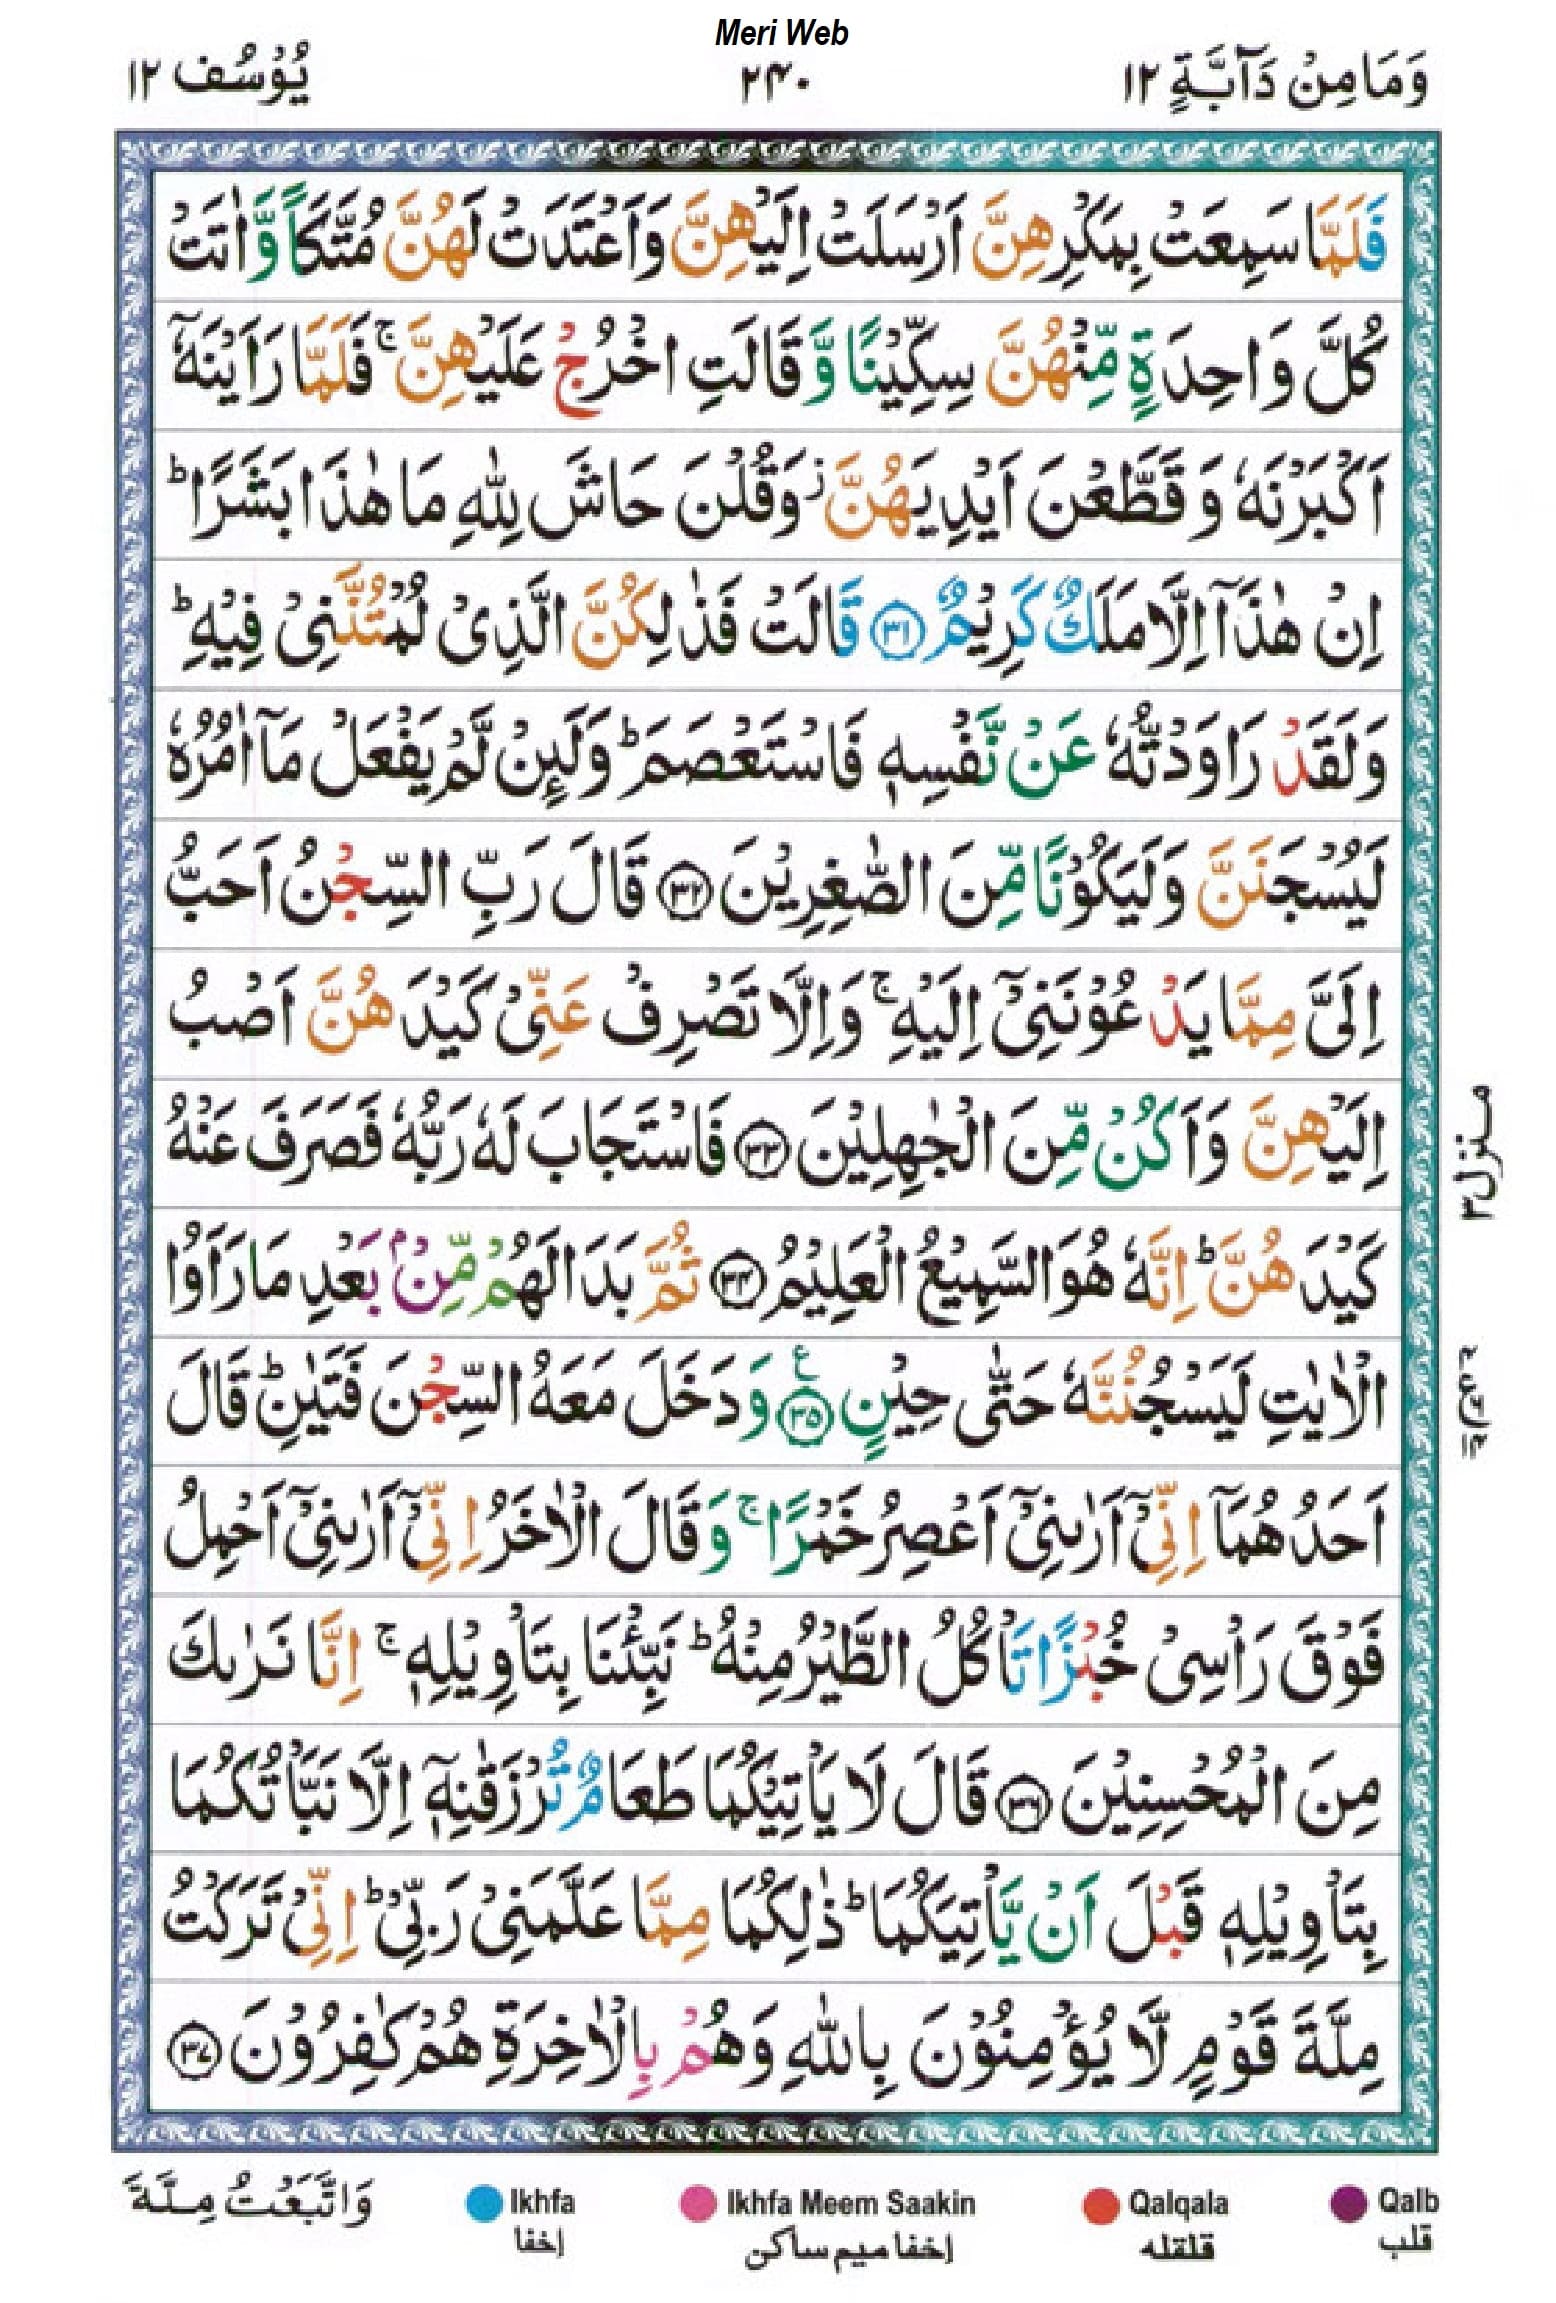 Meri Web
وَمَا مِنْ دَآبَّةٍ ١٢
٢٤٠
يُوْسُف ١٢
فَلَمَّا سَمِعَتْ بِمَكْرِهِنَّ اَرْسَلَتْ اِلَيْهِنَّ وَاَعْتَدَتْ لَهُنَّ مُتَّكَاً وَّاٰتَتْ
كُلَّ وَاحِدَةٍ مِّنْهُنَّ سِكِّيْنًا وَّقَالَتِ اخْرُجْ عَلَيْهِنَّ ۚ فَلَمَّا رَاَيْنَهٗۤ
اَكْبَرْنَهٗ وَقَطَّعْنَ اَيْدِيَهُنَّ ۡ وَقُلْنَ حَاشَ لِلّٰهِ مَا هٰذَا بَشَرًا ؕ
اِنْ هٰذَاۤ اِلَّا مَلَكٌ كَرِيْمٌ ﴿٣١﴾ قَالَتْ فَذٰلِكُنَّ الَّذِىْ لُمْتُنَّنِىْ فِيْهِ ؕ
وَلَقَدْ رَاوَدْتُّهٗ عَنْ نَّفْسِهٖ فَاسْتَعْصَمَ ؕ وَلَئِنْ لَّمْ يَفْعَلْ مَاۤ اٰمُرُهٗ
لَيُسْجَنَنَّ وَلَيَكُوْنًا مِّنَ الصّٰغِرِيْنَ ﴿٣٢﴾ قَالَ رَبِّ السِّجْنُ اَحَبُّ
اِلَىَّ مِمَّا يَدْعُوْنَنِىْۤ اِلَيْهِ ۚ وَاِلَّا تَصْرِفْ عَنِّىْ كَيْدَهُنَّ اَصْبُ
اِلَيْهِنَّ وَاَكُنْ مِّنَ الْجٰهِلِيْنَ ﴿٣٣﴾ فَاسْتَجَابَ لَهٗ رَبُّهٗ فَصَرَفَ عَنْهُ
كَيْدَهُنَّ ؕ اِنَّهٗ هُوَ السَّمِيْعُ الْعَلِيْمُ ﴿٣٤﴾ ثُمَّ بَدَا لَهُمْ مِّنْۢ بَعْدِ مَا رَاَوُا
الْاٰيٰتِ لَيَسْجُنُنَّهٗ حَتّٰى حِيْنٍ ﴿٣٥﴾ ع وَدَخَلَ مَعَهُ السِّجْنَ فَتَيٰنِ ؕ قَالَ
اَحَدُهُمَاۤ اِنِّىْۤ اَرٰىنِىْۤ اَعْصِرُ خَمْرًا ۚ وَقَالَ الْاٰخَرُ اِنِّىْۤ اَرٰىنِىْۤ اَحْمِلُ
فَوْقَ رَاْسِىْ خُبْزًا تَاْكُلُ الطَّيْرُ مِنْهُ ؕ نَبِّئْنَا بِتَاْوِيْلِهٖ ۚ اِنَّا نَرٰىكَ
مِنَ الْمُحْسِنِيْنَ ﴿٣٦﴾ قَالَ لَا يَاْتِيْكُمَا طَعَامٌ تُرْزَقٰنِهٖۤ اِلَّا نَبَّاْتُكُمَا
بِتَاْوِيْلِهٖ قَبْلَ اَنْ يَّاْتِيَكُمَا ؕ ذٰلِكُمَا مِمَّا عَلَّمَنِىْ رَبِّىْ ؕ اِنِّىْ تَرَكْتُ
مِلَّةَ قَوْمٍ لَّا يُؤْمِنُوْنَ بِاللّٰهِ وَهُمْ بِالْاٰخِرَةِ هُمْ كٰفِرُوْنَ ﴿٣٧﴾
منزل ٣
وَاتَّبَعْتُ مِلَّةَ
Ikhfa
إخفا
Ikhfa Meem Saakin
إخفا ميم ساكن
Qalqala
قلقله
Qalb
قلب